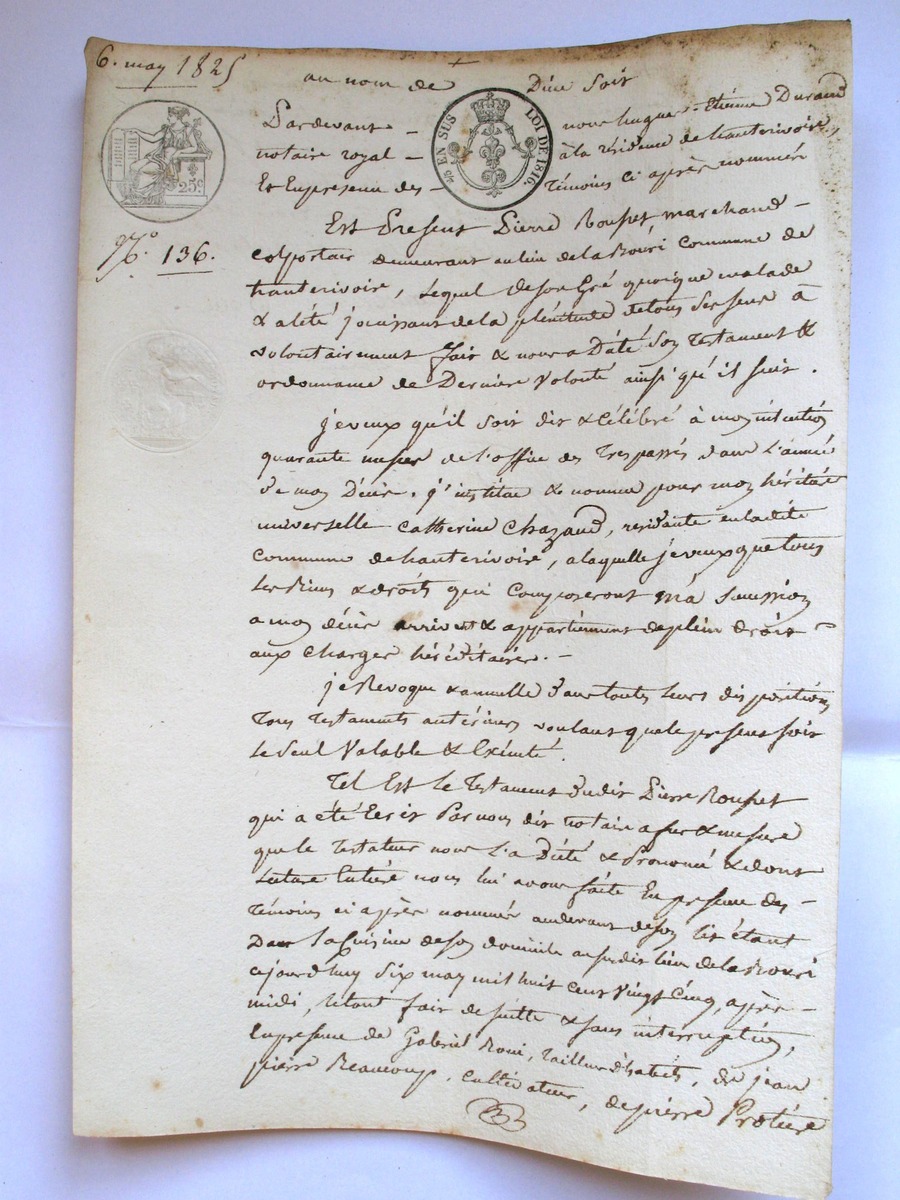 6. may 1825
au nom de Dieu Soit
Pardevant - nous hugue-Etienne Durand
notaire royal - à la résidence de hauterivoire,
Et En presence des - témoins ci après nommés
25c
EN SUS LOI DE 1816.
N.° 136.
Est Present Pierre Roupet marchand -
colportair demeurant au lieu de la Bouri Commune de
hauterivoire, Lequel de son Gré quoique malade
& alété jouissant de la plénitude de tous ses sens à
volontairement fait & nous a Dicté Son Testament &
ordonnance de Derniere Volonté ainsi qu'il suit.
je veux qu'il soit dit & célébré à mon intention
quarante messes de L'office des Trespassés dans L'année
de mon Décès. j'institue & nomme pour mon héritière
universelle Catherine Chazaud, résidante en ladite
Commune de hauterivoire, a laquelle je veux que tous
Les Biens & droits qui Composeront má Succession
a mon décès arrivent & appartiennent de plein droit
aux Charges héréditaires. -
je Revoque & annulle dans toutes leurs dispositions
Tous Testaments antérieurs voulant que le présent soit
Le Seul Valable & Exécuté.
Tel Est le Testament dudit Pierre Roupet
qui a été Ecrit Par nous dit notaire a fur & mesure
que le Testateur nous L'a Dicté & Prononcé & dont
Lecture Entiere nous lui avons faite En presence des -
Témoins ci après nommés au devant de son lit étant
Dans la Cuisine de son domicile au susdit lieu de la Bouri
ajourdhuy Six may mil huit cent Vingt Cinq, après -
midi, le tout fait de suitte & sans interruption,
En presence de Gabriel Roni, tailleur d'habits, de jean
pierre Beaucoup, cultivateur, de pierre Protiere